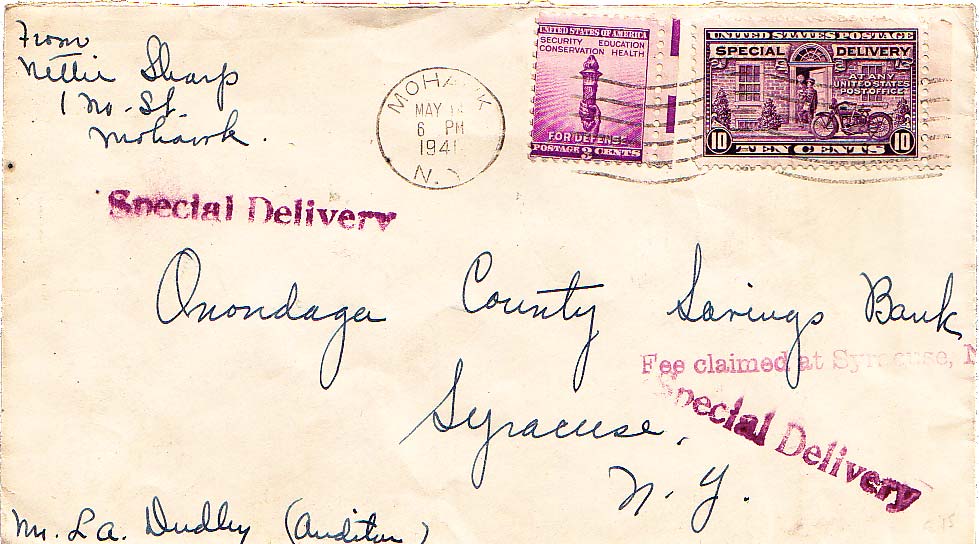 From
Nettie Sharp
1 No. St.
Mohawk.
MOHAWK
MAY
6 PM
1941
N.Y.
UNITED STATES OF AMERICA
SECURITY EDUCATION
CONSERVATION HEALTH
FOR DEFENSE
POSTAGE 3 CENTS
UNITED STATES POSTAGE
SPECIAL DELIVERY
AT ANY
UNITED STATES
POST OFFICE
10 TEN CENTS 10
Special Delivery
Onondaga County Savings Bank
Fee claimed at Syracuse, N
Special Delivery
Syracuse.
N. Y.
Mr. L a. Dudley (Auditor)